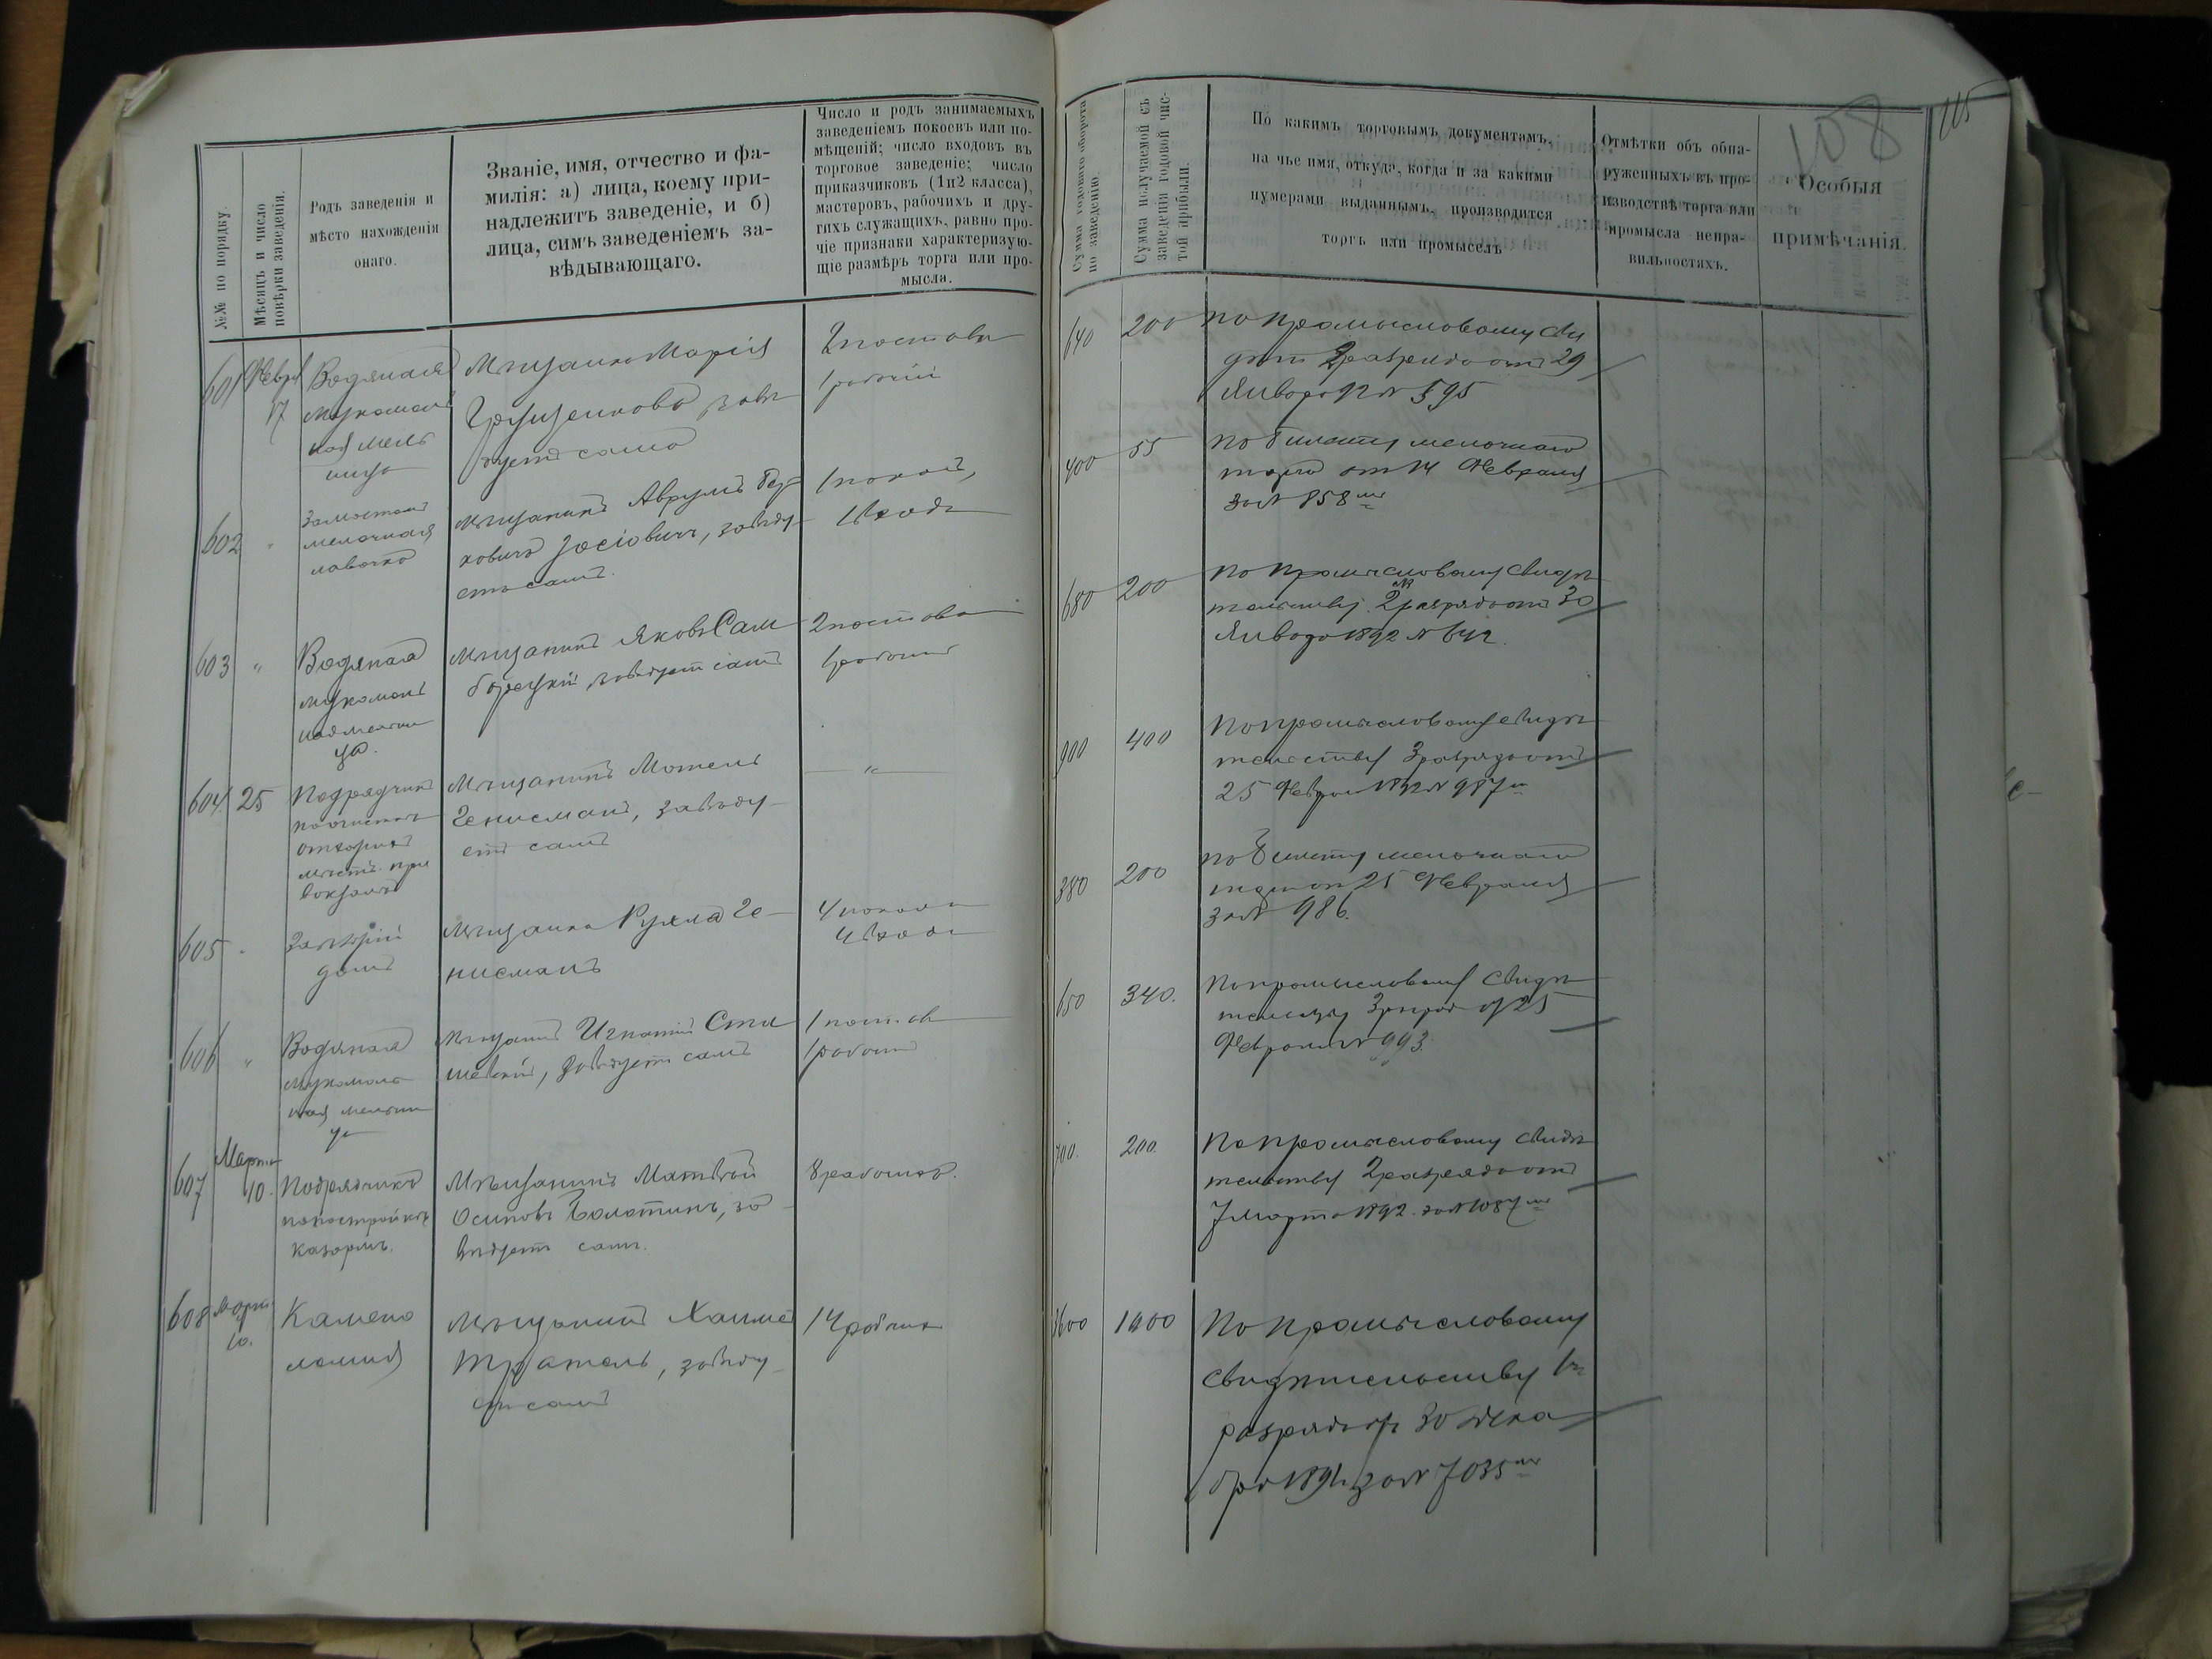 108
115
№№ по порядку.
Мѣсяцъ и число
повѣрки заведенія.
Родъ заведенія и
мѣсто нахожденія
онаго.
Званіе, имя, отчество и фа-
милія: а) лица, коему при-
надлежитъ заведеніе, и б)
лица, симъ заведеніемъ за-
вѣдывающаго.
Число и родъ занимаемыхъ
заведеніемъ покоевъ или по-
мѣщеній; число входовъ въ
торговое заведеніе; число
приказчиковъ (1и2 класса),
мастеровъ, рабочихъ и дру-
гихъ служащихъ, равно про-
чіе признаки характеризую-
щіе размѣръ торга или про-
мысла.
Сумма годоваго оборота
по заведенію.
Сумма получаемой съ
заведенія годовой чис-
той прибыли.
По какимъ торговымъ документамъ,
на чье имя, откуда, когда и за какими
нумерами выданнымъ, производится
торгъ или промыселъ
Отмѣтки объ обна-
руженныхъ въ про-
изводствѣ торга или
промысла непра-
вильностяхъ.
Особыя
примѣчанія.
601
Февр
17
Водяная
мукомоль
ная мель
ница
Мѣщанка Марія
завѣ
дуетъ сама
2 постава
1 рабочій
640
200
по промысловому сви
дѣт 2 разряда отъ 29
Января 92 № 595
602
"
мелочная
лавочка
Мѣщанинъ Аврумъ Бер
ковичъ Іосіовичъ, завѣду
етъ самъ.
1 покой,
1 входъ
400
55
по билету мелочнаго
торга от 14 Февраля
за № 858
603
"
Водяная
мукомоль
ная мельни
ца.
Мѣщанинъ Яковъ Сам
борскій завѣдует самъ
2 постава
1 рабочій
680
200
по промысловому свидѣ
тельству 2 разряда от 30
Января 1892 № 642
604
25
Подрядчикъ
по очисткѣ
отхожихъ
мѣстъ при
вокзалѣ
Мѣщанинъ Мотель
Генисманъ, завѣду-
етъ самъ
"
900
400
По промысловому свидѣ
тельству 3 разряда отъ
25 Февраля 1892 № 987
605
"
Заѣзжій
домъ
Мѣщанка Рухля Ге-
нисманъ
4 покоя
4 входа
380
200
по билету мелочнаго
торга от 25 Февраля
за № 986.
606
"
Водяная
мукомоль
ная мельни
ца
Мѣщанин Игнатій Ста
шевскій, завѣдует самъ
1 постав
1 рабочій
650
340.
По промысловому свидѣ
тельству 3 разряда от 25
Февраля № 993.
607
Марта
10.
Подрядчикъ
по постройкѣ
казармъ.
Мѣщанинъ Матвѣй
Осиповъ Болотинъ, за
вѣдуетъ самъ.
8 рабочихъ.
700.
200.
По промысловому свидѣ
тельству 2 разряда отъ
7 Марта 1892. за № 1087
608
Марта
10.
Камено
ломня
Мѣщанинъ Хаимъ
завѣду
етъ самъ
14 рабочих
3600
1400
По промысловому
свидѣтельству 1
разряда от 30 Дека
бря 1891 за № 7035